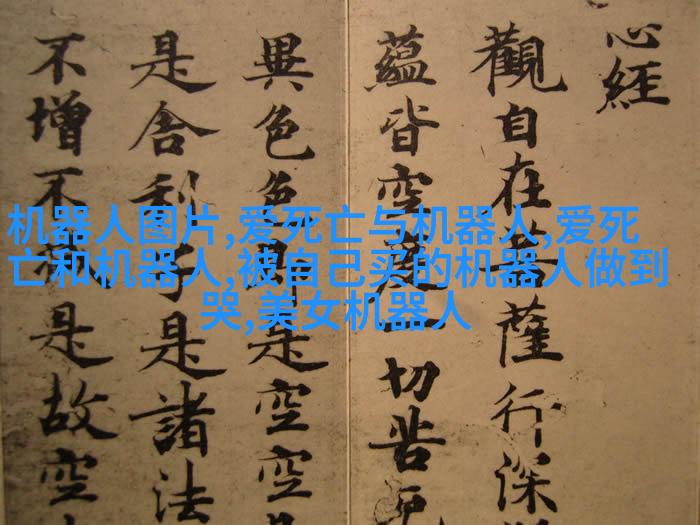 心經
觀自在菩薩行深
蘊皆空度一切苦厄
異色色即是空空
是舍利子是諸法
不增不減是故空
机器人图片,爱死亡与机器人,爱死
亡和机器人,被自己买的机器人做到
哭,美女机器人